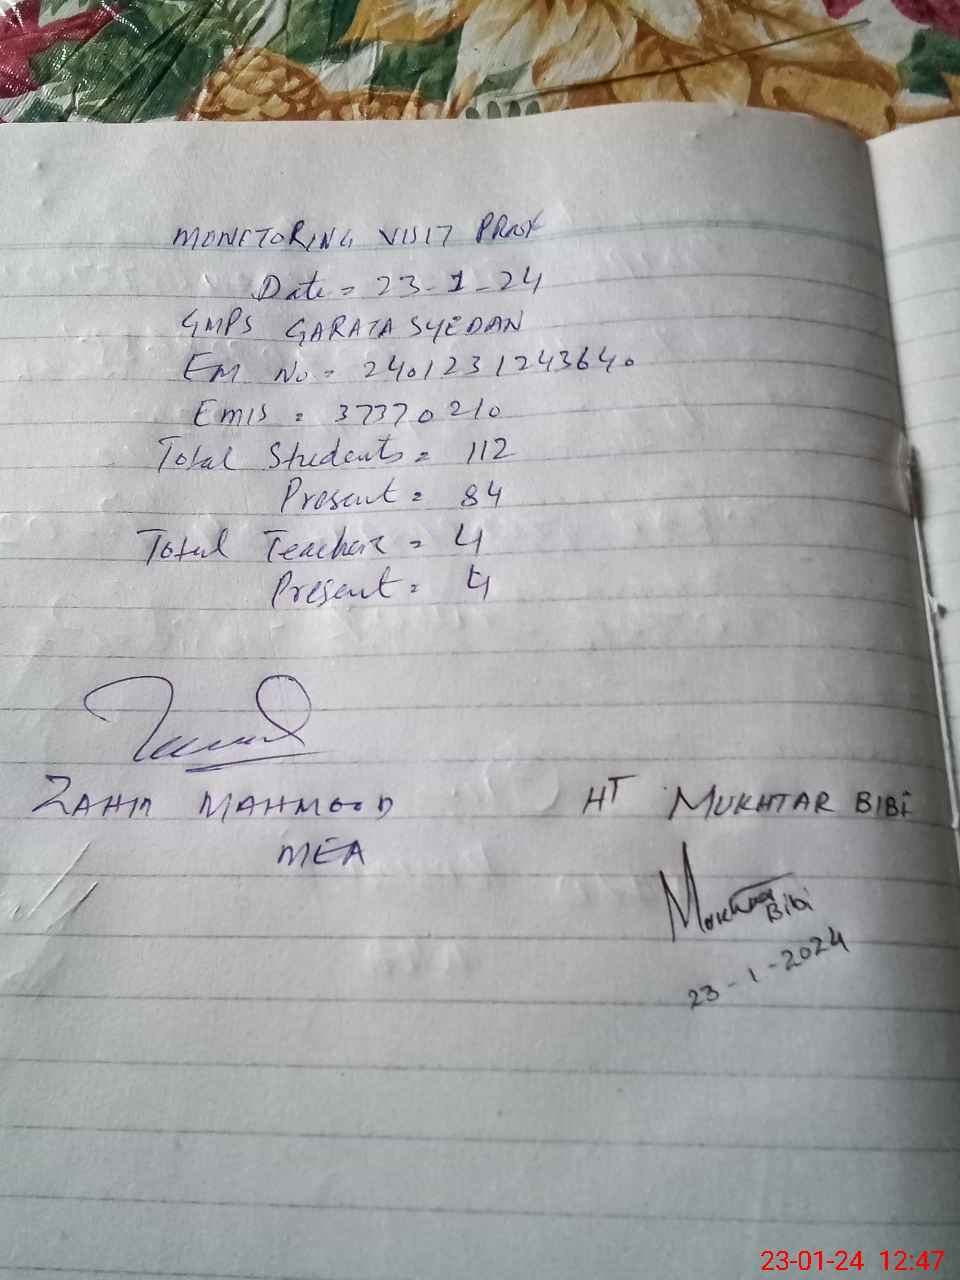 MONITORING VISIT PROOF
Date = 23-1-24
GMPS GARATA SYEDAN
EM No = 2401231243640
Emis = 37370210
Total Students = 112
Present = 84
Total Teachers = 4
Present = 4
ZAHID MAHMOOD
MEA
HT MUKHTAR BIBI
Mukhtar Bibi
23-1-2024
23-01-24 12:47